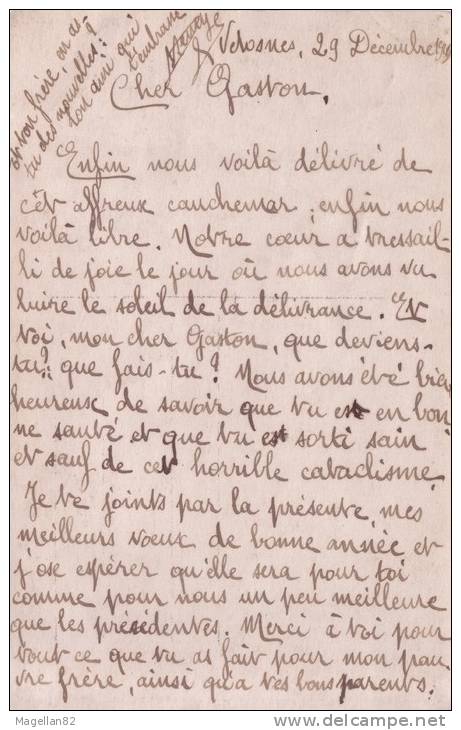 Velosnes, 29 Décembre
Cher Gaston,
Enfin nous voilà délivré de
cèt affreux cauchemar, enfin nous
voilà libre. Notre cœur a tressail-
li de joie le jour où nous avons vu
luire le soleil de la délivrance. Et
toi, mon cher Gaston, que deviens-
tu? que fais-tu? Nous avons été bien
heureuse de savoir que tu est en bon
ne santé et que tu est sorti sain
et sauf de cet horrible cataclisme.
Je te joints par la présente, mes
meilleurs vœux de bonne année et
j'ose espérer qu'elle sera pour toi
comme pour nous un peu meilleure
que les présédentes. Merci à toi pour
tout ce que tu as fait pour mon pau
vre frère, ainsi qu'a tes bons parents.
et ton frère, en as
tu des nouvelles?
Ton amie qui
t'embrasse
Magellan82
delcampe.net